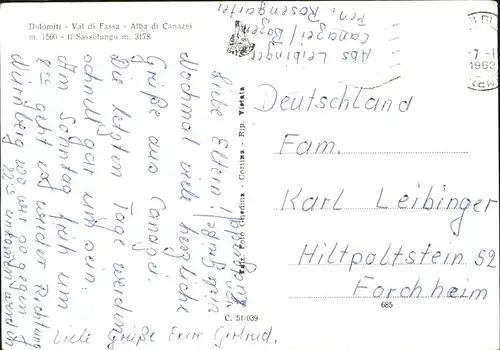 Dolomiti - Val di Fassa - Alba di Canazei
m. 1560 - Il Sassolungo m. 3178
Abs Leibinger
Canazei / Bozen
Pen. Rosengarten
1962
Liebe Eltern!
Nochmal viele herzliche
Grüße aus Canazei.
Die letzten Tage werden
schnell gar um sein.
Am Sonntag früh um
8 00 geht es wieder Richtung
Nürnberg wo wir gegen
22 00 ankommen werden
Viele Grüße Eure Gertrud.
Ediz. Foto Ghedina - Cortina - Rip. Vietata
C. 51/039
Deutschland
Fam.
Karl Leibinger
Hiltpoltstein 52
Forchheim
685